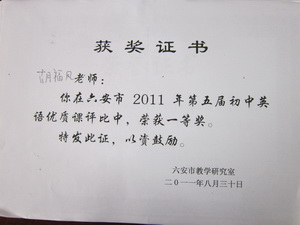 获奖证书
胡福凤老师：
你在六安市 2011 年第五届初中英
语优质课评比中，荣获一等奖。
特发此证，以资鼓励。
六安市教学研究室
二〇一一年八月三十日